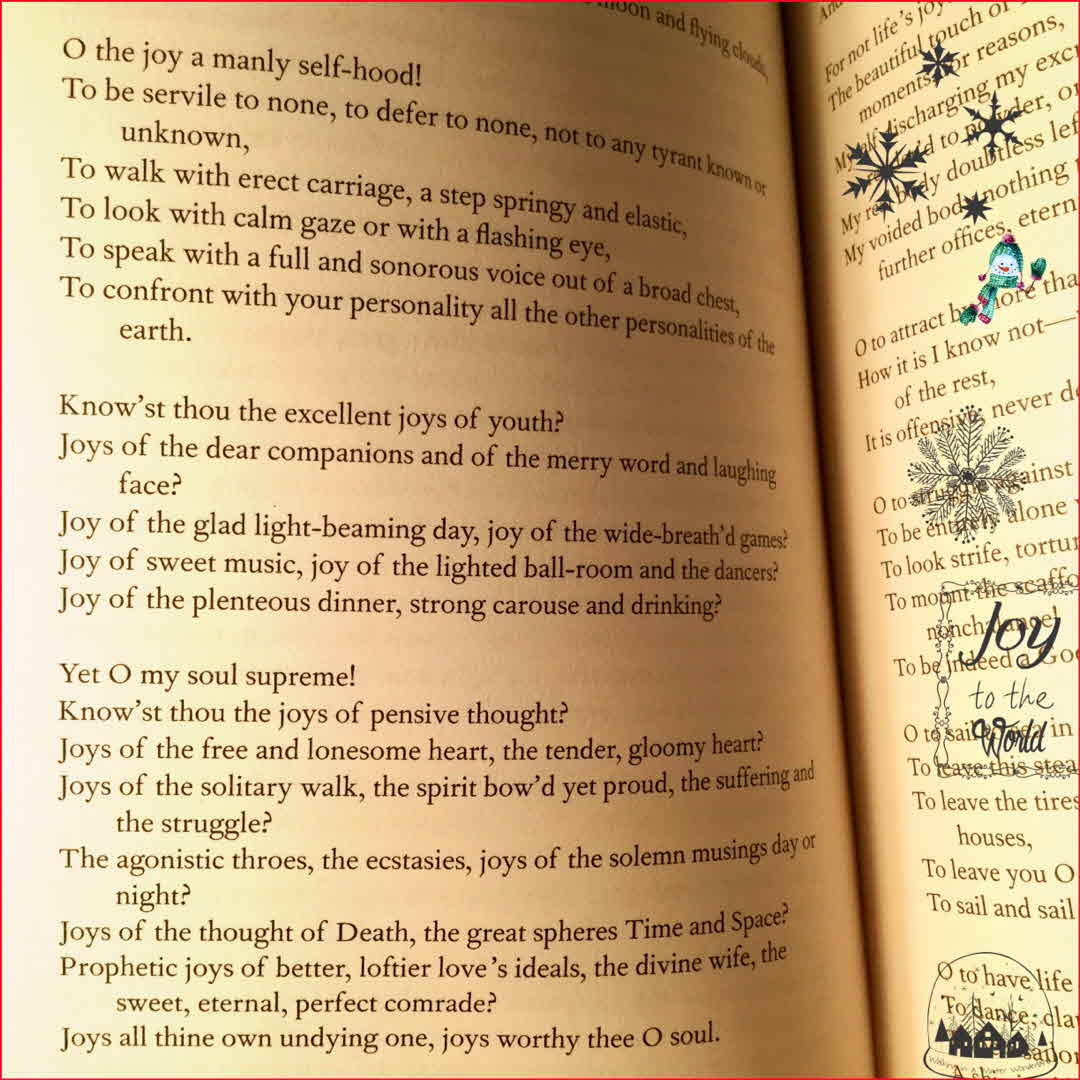 moon and flying clouds,
O the joy a manly self-hood!
To be servile to none, to defer to none, not to any tyrant known or
unknown,
To walk with erect carriage, a step springy and elastic,
To look with calm gaze or with a flashing eye,
To speak with a full and sonorous voice out of a broad chest,
To confront with your personality all the other personalities of the
earth.
Know'st thou the excellent joys of youth?
Joys of the dear companions and of the merry word and laughing
face?
Joy of the glad light-beaming day, joy of the wide-breath'd games?
Joy of sweet music, joy of the lighted ball-room and the dancers?
Joy of the plenteous dinner, strong carouse and drinking?
Yet O my soul supreme!
Know'st thou the joys of pensive thought?
Joys of the free and lonesome heart, the tender, gloomy heart?
Joys of the solitary walk, the spirit bow'd yet proud, the suffering and
the struggle?
The agonistic throes, the ecstasies, joys of the solemn musings day or
night?
Joys of the thought of Death, the great spheres Time and Space?
Prophetic joys of better, loftier love's ideals, the divine wife, the
sweet, eternal, perfect comrade?
Joys all thine own undying one, joys worthy thee O soul.
For not life's joy
The beautiful touch of
moments, for reasons,
discharging my
to powder, or
My body doubtless left
My voided body nothing
further offices,
O to attract by more
How it is I know not—
of the rest,
It is offensive, never
O to struggle against
To be entirely alone
To look strife,
To mount the
To be indeed a
O to sail in
To leave this
To leave the tires
houses,
To leave you O
To sail and sail
O to have life
To dance,
Joy
to the
World
Walking in A Winter Wonderland